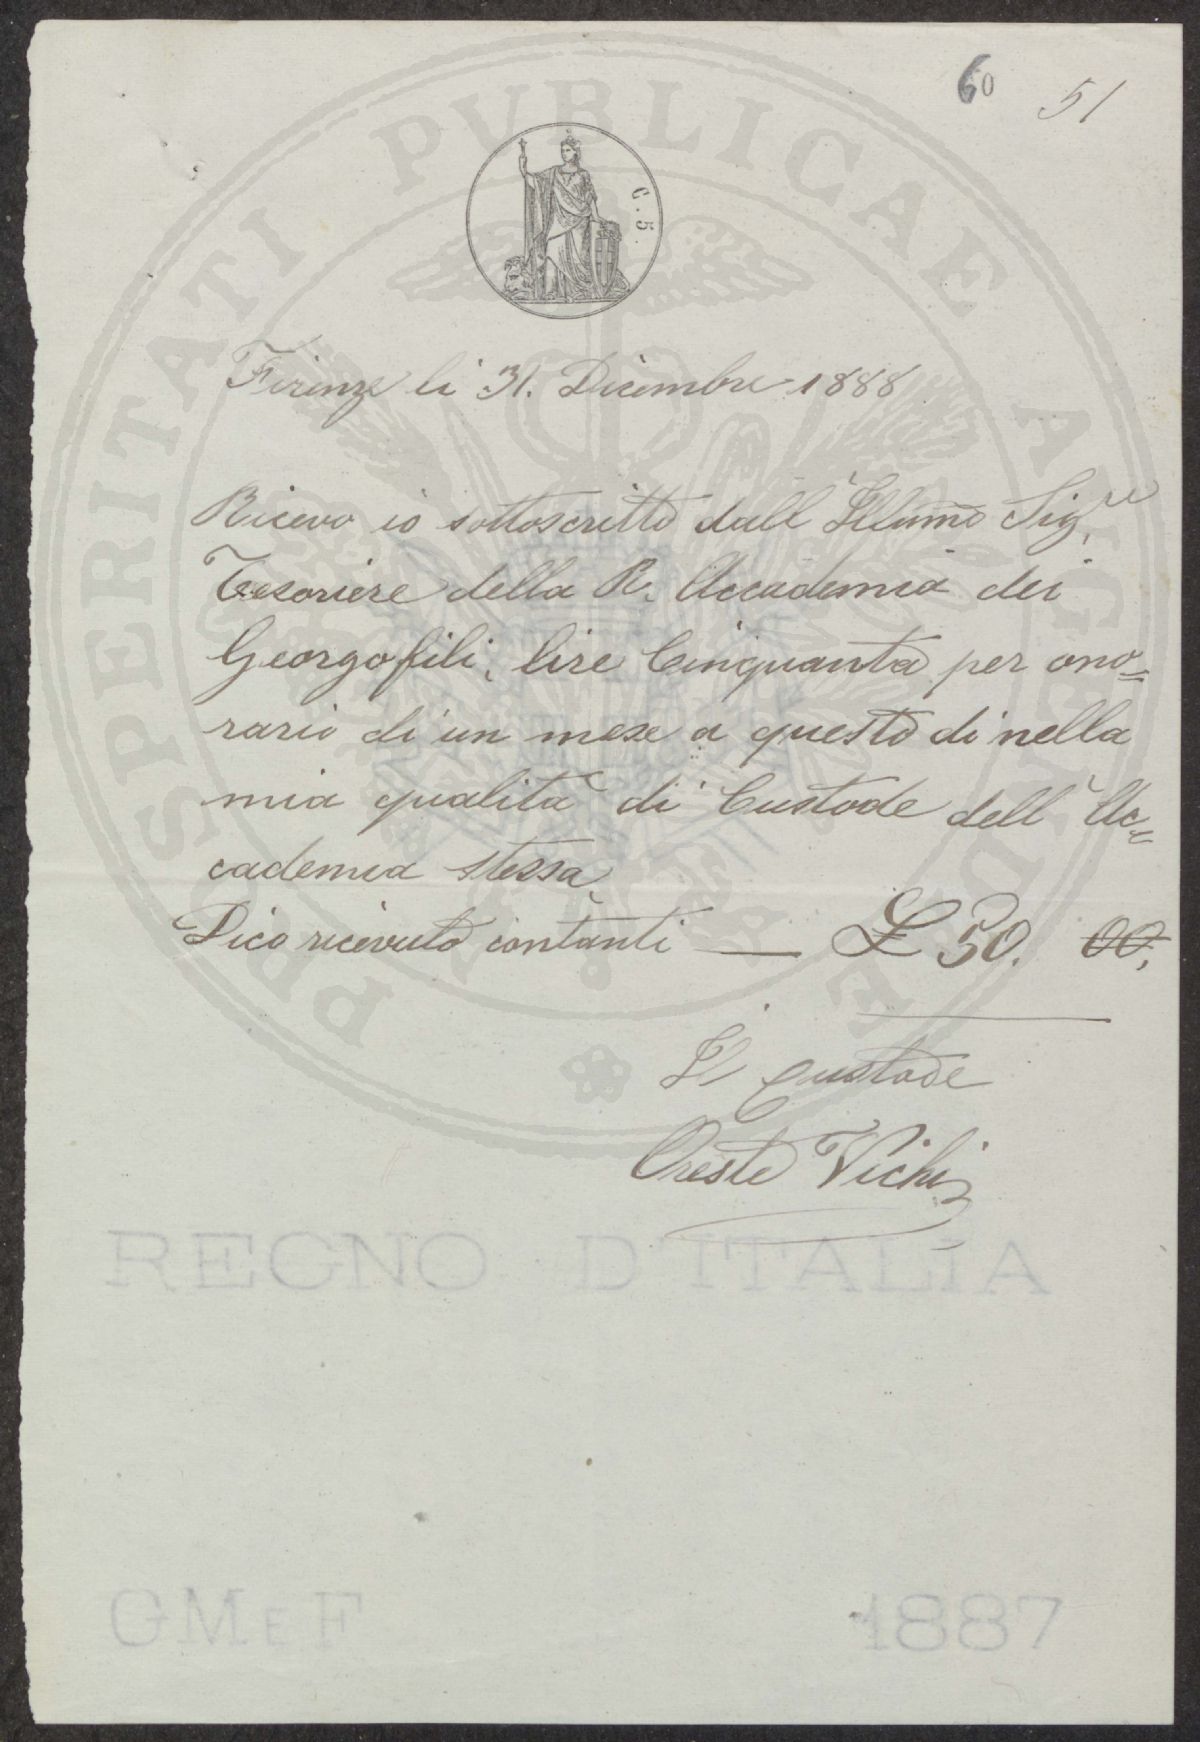 60 51
C. 5.
PROSPERITATI PUBLICAE AUGENDAE
Firenze li 31. Dicembre 1888
Ricevo io sottoscritto dall' Illumo Sigre
Tesoriere della R. Accademia dei
Georgofili, lire Cinquanta per ono=
rario di un mese a questo di nella
mia qualità di Custode dell' Ac=
cademia stessa
Dico ricevuto contanti — £ 50. 00,
Il Custode
Oreste Vichi
REGNO D'ITALIA
GMeF 1887